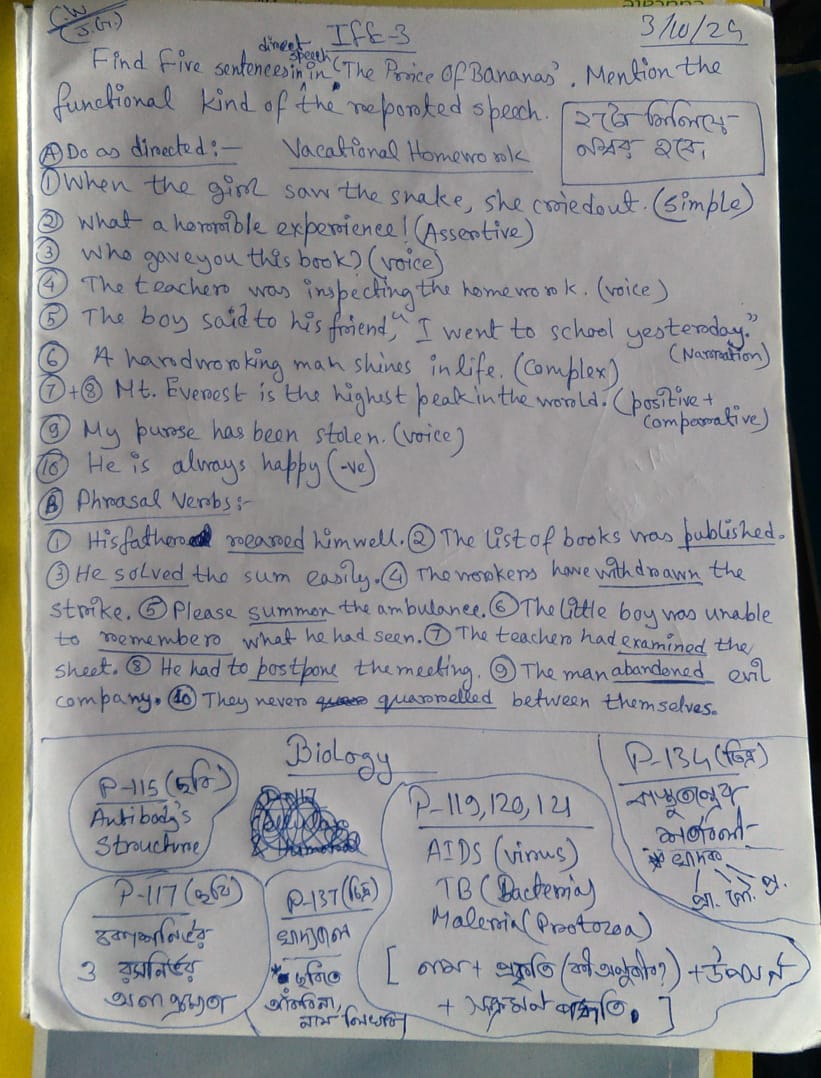 C.W
(S.G.)
IFE-3
3/10/25
Find five sentences in direct speech in 'The Price Of Bananas'. Mention the
functional kind of the reported speech.
২টো মিলিয়ে
নম্বর হবে।
(A) Do as directed:- Vacational Homework
① When the girl saw the snake, she cried out. (Simple)
② What a horrible experience! (Assertive)
③ Who gave you this book? (voice)
④ The teacher was inspecting the homework. (voice)
⑤ The boy said to his friend, "I went to school yesterday."
(Narration)
⑥ A hardworking man shines in life. (Complex)
⑦+⑧ Mt. Everest is the highest peak in the world. (positive +
Comparative)
⑨ My purse has been stolen. (voice)
⑩ He is always happy (-ve)
(B) Phrasal Verbs:-
① His father reared him well. ② The list of books was published.
③ He solved the sum easily. ④ The workers have withdrawn the
strike. ⑤ Please summon the ambulance. ⑥ The little boy was unable
to remember what he had seen. ⑦ The teacher had examined the
sheet. ⑧ He had to postpone the meeting. ⑨ The man abandoned evil
company. ⑩ They never quarrelled between themselves.
Biology
P-115 (ছবি)
Antibody's
Structure
P-117 (ছবি)
ও রসনির্ভর
P-137 (চিত্র)
খাদ্যজাল
* ছবিতে
P-119, 120, 121
AIDS (virus)
TB (Bacteria)
Maleria (Protozoa)
[ নাম + প্রকৃতি +
+ সংক্রমণ পদ্ধতি. ]
P-134 (চিত্র)
* খাদক